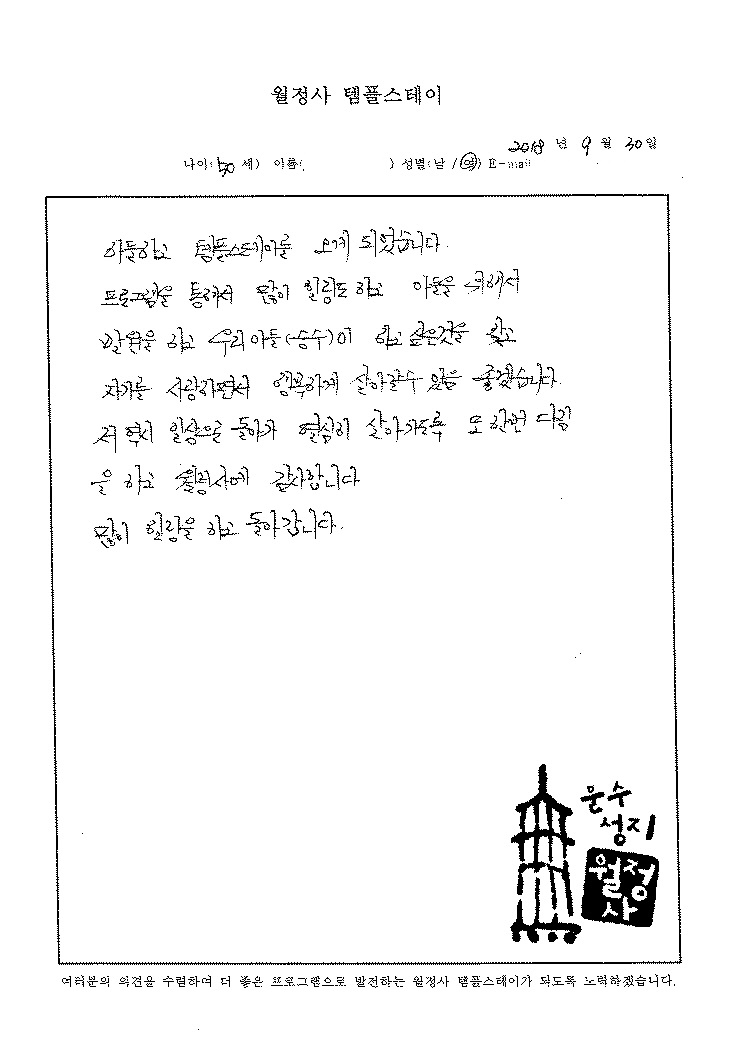 월정사 템플스테이
2018 년 9 월 30 일
나이( 50 세) 이름( ) 성별(남 / 여) E-mail
아들하고 템플스테이를 오게 되었습니다.
프로그램을 통해서 많이 힐링도 하고 아들을 위해서
발원을 하고 우리아들(승수)이 하고 싶은것을 찾고
자기를 사랑하면서 행복하게 살아갈수 있음 좋겠습니다.
저 역시 일상으로 돌아가 열심히 살아가도록 또 한번 다짐
을 하고 월정사에 감사합니다
많이 힐링을 하고 돌아갑니다.
문수
성지
월정
사
여러분의 의견을 수렴하여 더 좋은 프로그램으로 발전하는 월정사 템플스테이가 되도록 노력하겠습니다.